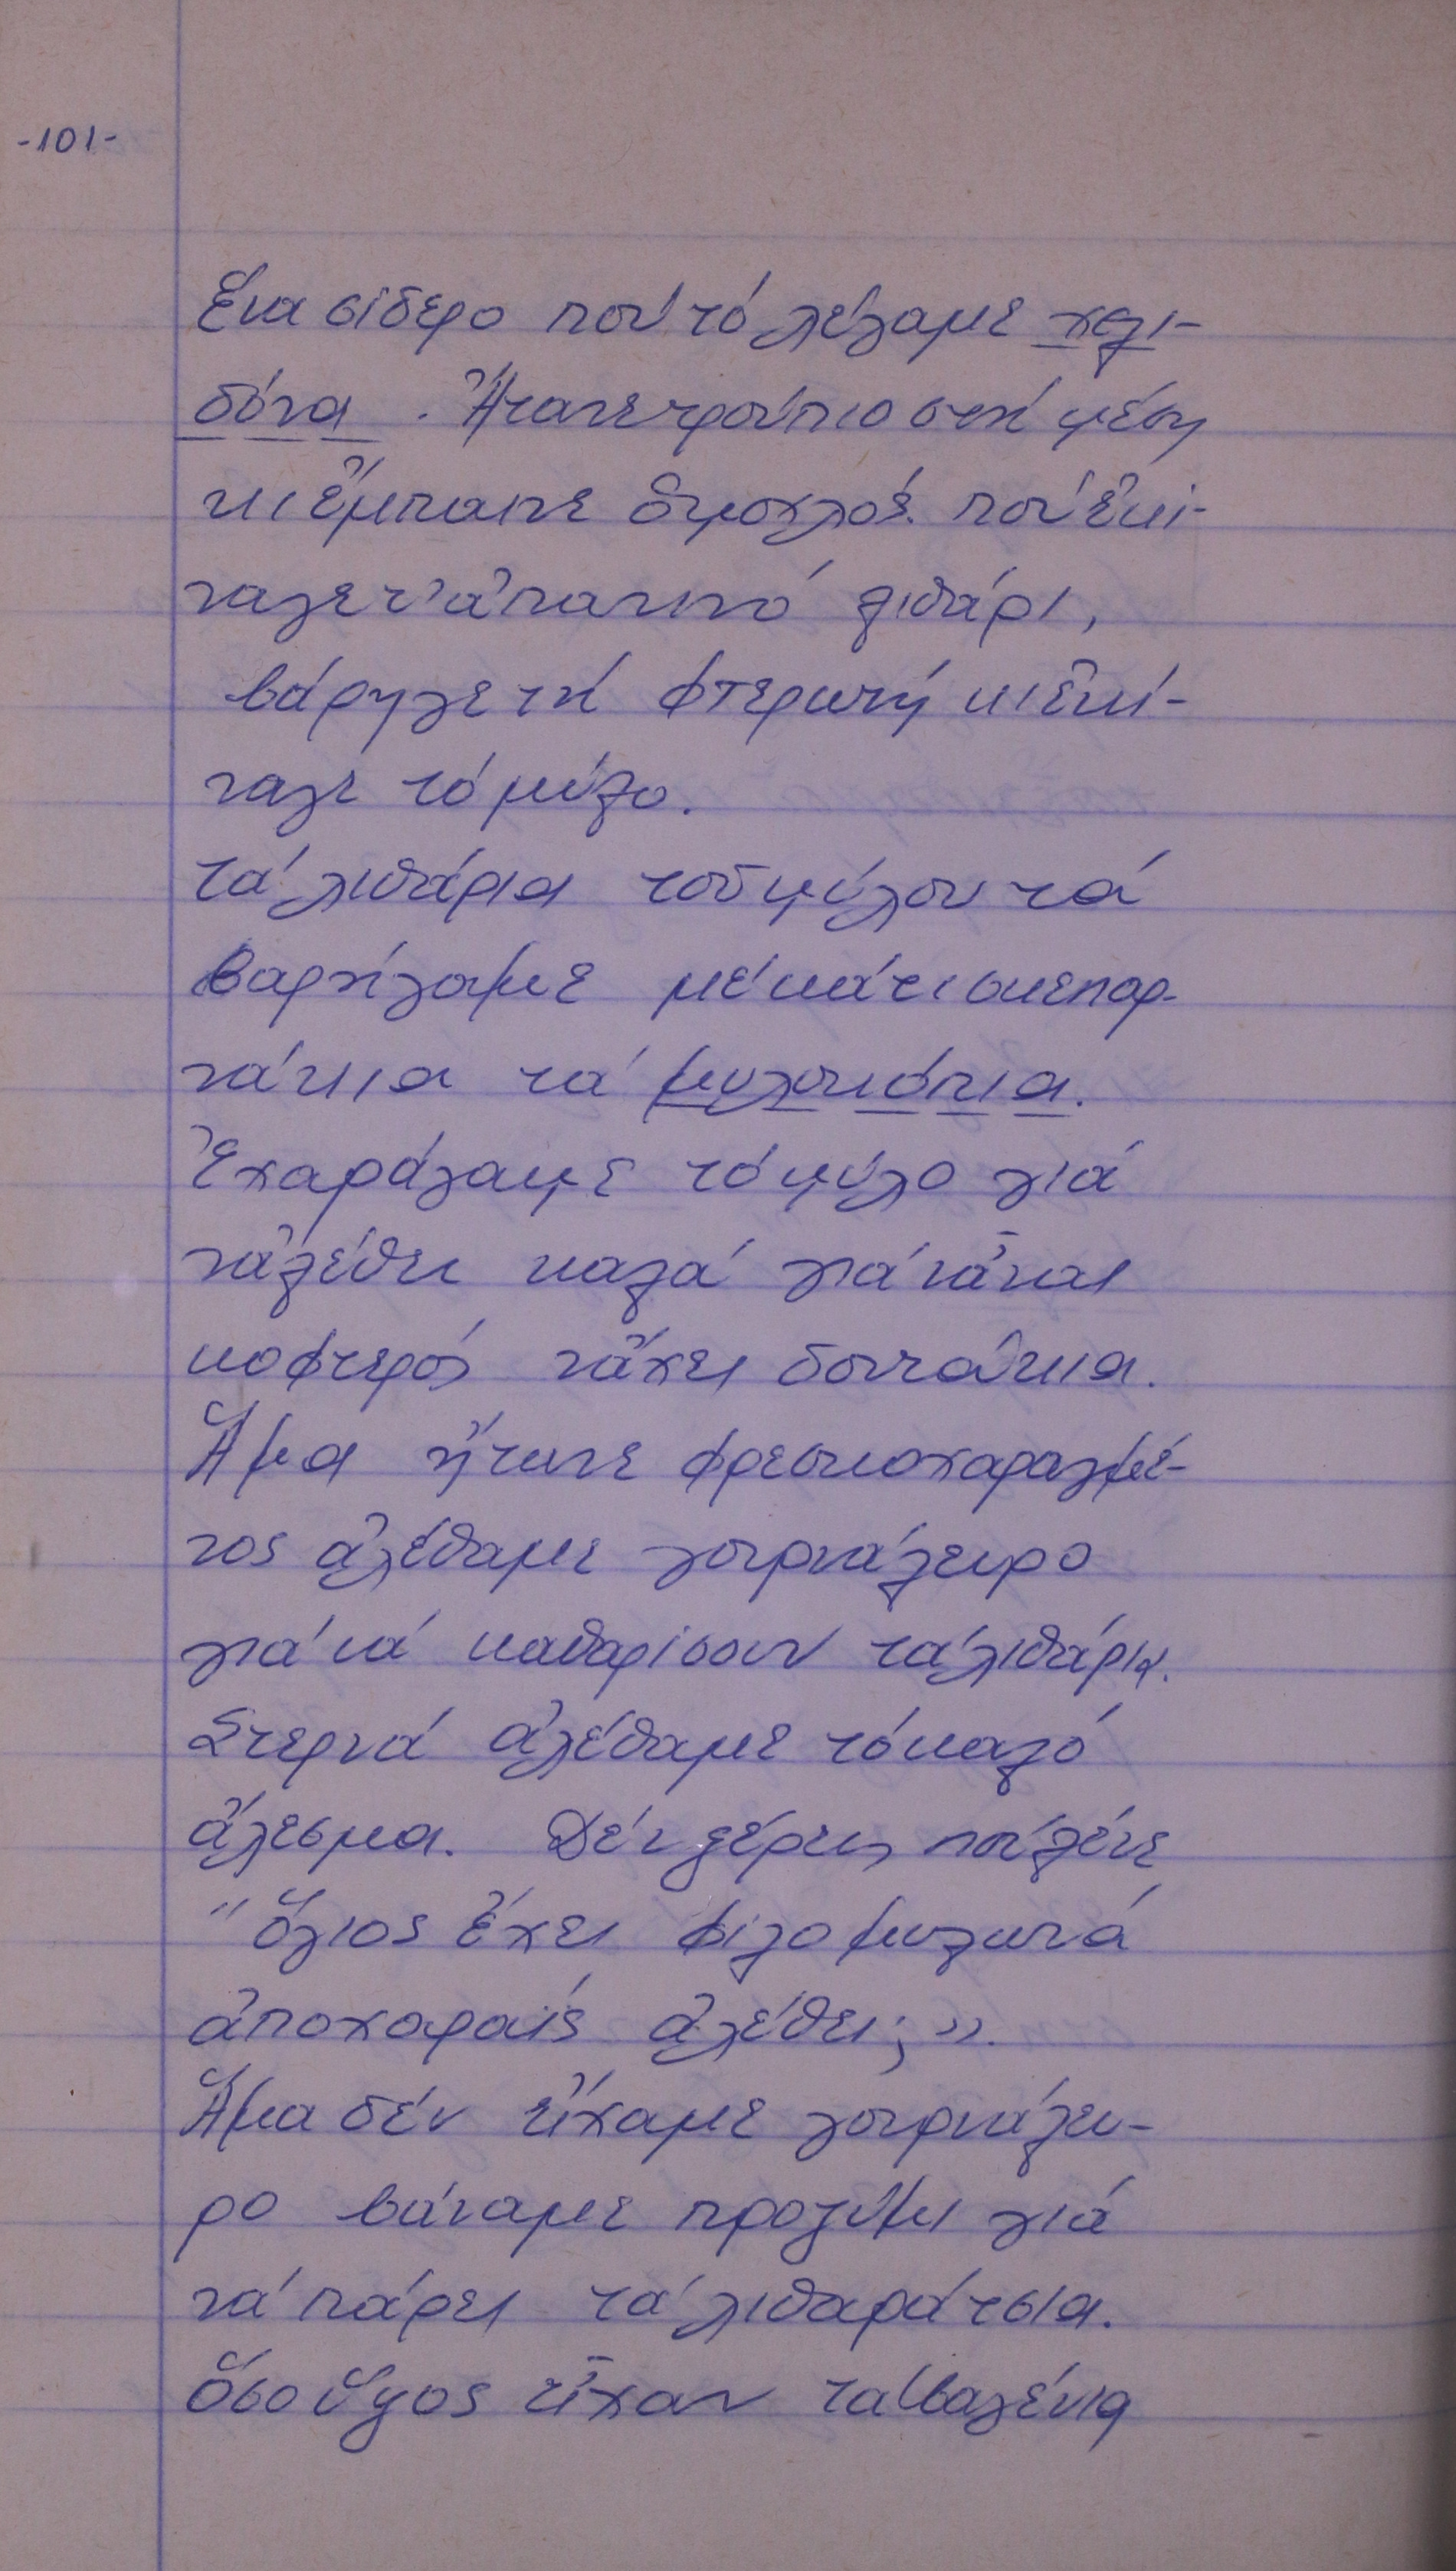 -101-
ἕνα σίδερο πού τό λέγαμε χελι-
δόνα. Ἤτανε τρούπιο στή μέση
κι ἔμπαινε ὁ μοχλός πού ἐκί-
ναγε τ' ἀπανινό λιθάρι,
βάρηγε τή φτερωτή κι ἐκί-
ναγε τό μύλο.
τά λιθάρια τοῦ μύλου τά
βαρήγαμε μέ κάτι σκεπαρ-
νάκια τά μυλοκόπια.
Ἐχαράγαμε τό μύλο γιά
ν' ἀλέθει καλά γιά νἆναι
κοφτερός νἄχει δοντάκια.
Ἅμα ἤτανε φρεσκοχαραγμέ-
νος ἀλέθαμε γουρνάλευρο
γιά νά καθαρίσουν τά λιθάρια.
Στερνά ἀλέθαμε τό καλό
ἄλεσμα. Δέν ξέρεις πού λένε
"ὅγιος ἔχει φίλο μυλωνά
ἀποχαραΐς ἀλέθει;".
Ἅμα δέν εἴχαμε γουρνάλευ-
ρο βάναμε προζύμι γιά
νά πάρει τά λιθαράτσια.
Ὅσο ὕψος εἶχαν τα βαγένια